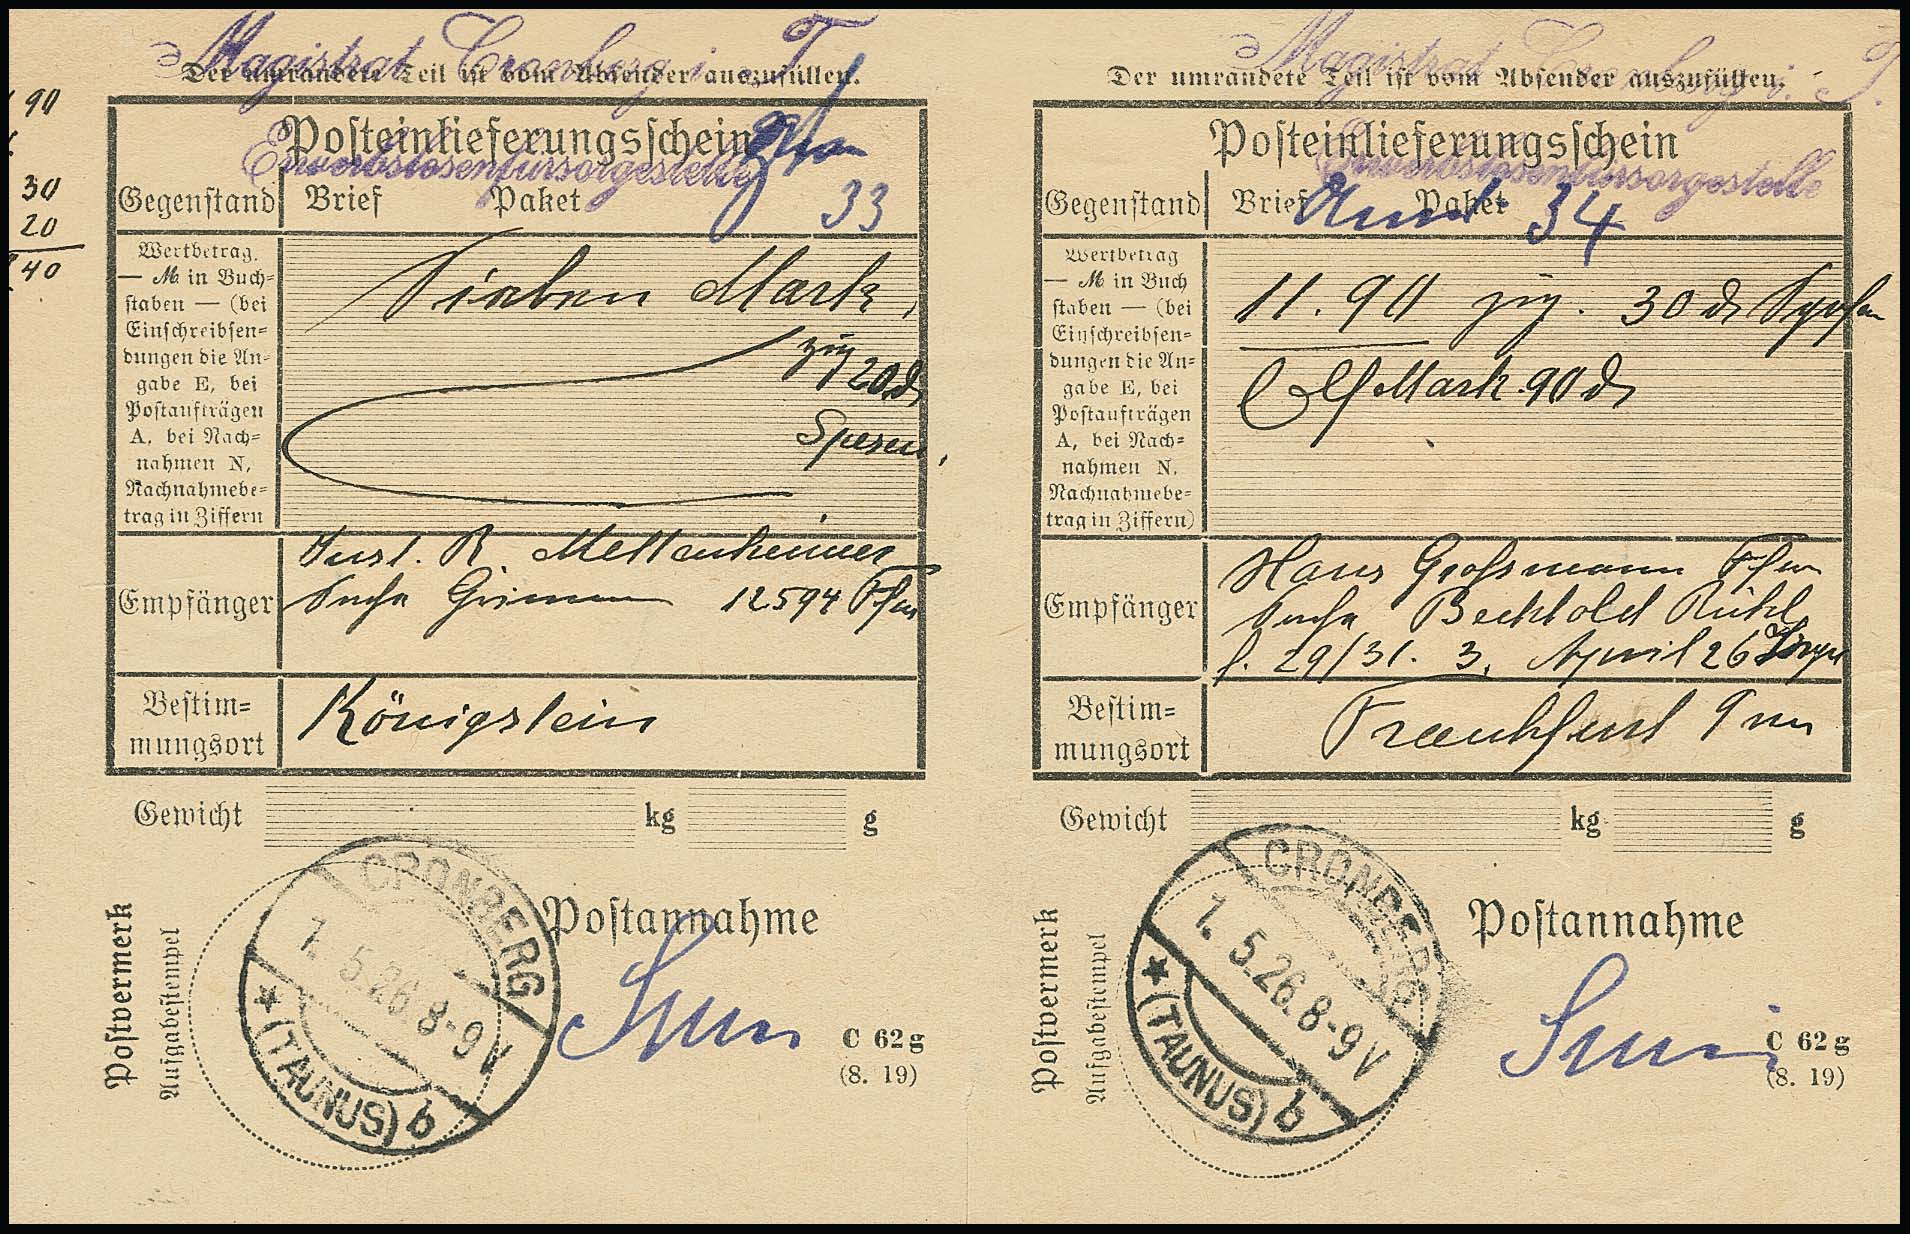 Magistrat Cronberg i. T.
Der umrandete Teil ist vom Absender auszufüllen.
Posteinlieferungsschein
Erwerbslosenfürsorgestelle
33
Gegenstand
Brief Paket
Wertbetrag.
— M in Buch-
staben — (bei
Einschreibsen-
dungen die An-
gabe E, bei
Postaufträgen
A, bei Nach-
nahmen N,
Nachnahmebe-
trag in Ziffern
Sieben Mark,
zzg 20 d
Spesen.
Empfänger
Just. R Mettenheimer
Sache Grimm 12594 Ffm
Bestim-
mungsort
Königstein
Gewicht kg g
Postvermerk
Aufgabestempel
CRONBERG
1. 5.26. 8-9 V
* (TAUNUS) b
Postannahme
C 62 g
(8. 19)
90
30
20
40
Magistrat Cronberg i. T.
Der umrandete Teil ist vom Absender auszufüllen.
Posteinlieferungsschein
Erwerbslosenfürsorgestelle
Gegenstand
Brief Paket
34
Wertbetrag
— M in Buch
staben — (bei
Einschreibsen-
dungen die An-
gabe E, bei
Postaufträgen
A, bei Nach-
nahmen N.
Nachnahmebe-
trag in Ziffern)
11.90 zzg. 30 d
Elf Mark 90 d
Empfänger
Hans Grossmann Ffm
Sache Bechtold Rühl
f. 29/31. 3. April 26
Bestim-
mungsort
Frankfurt Main
Gewicht kg g
Postvermerk
Aufgabestempel
CRONBERG
1. 5.26. 8-9 V
* (TAUNUS) b
Postannahme
C 62 g
(8. 19)